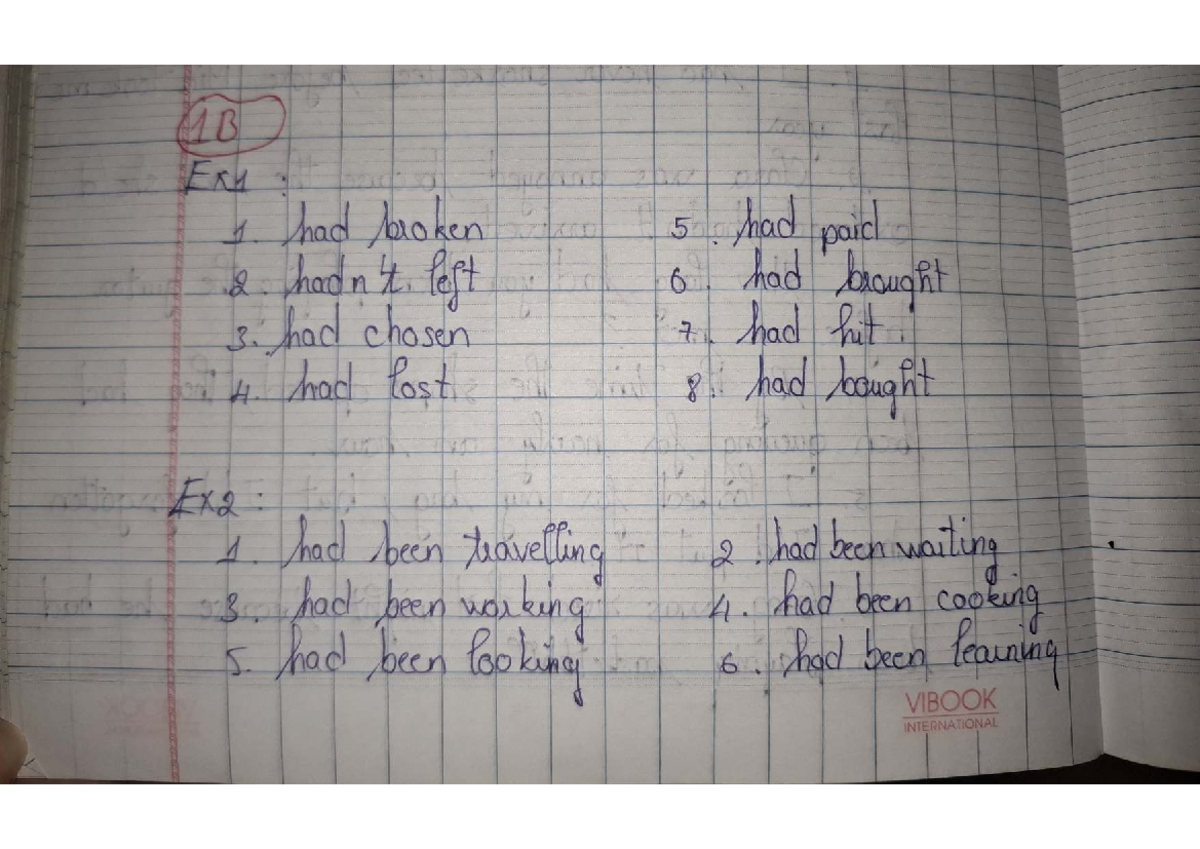 1B
Ex1 :
1. had broken 5. had paid
2. hadn't left 6. had brought
3. had chosen 7. had hit
4. had lost 8. had bought
Ex2 :
1. had been travelling 2. had been waiting
3. had been working 4. had been cooking
5. had been looking 6. had been learning
VIBOOK
INTERNATIONAL